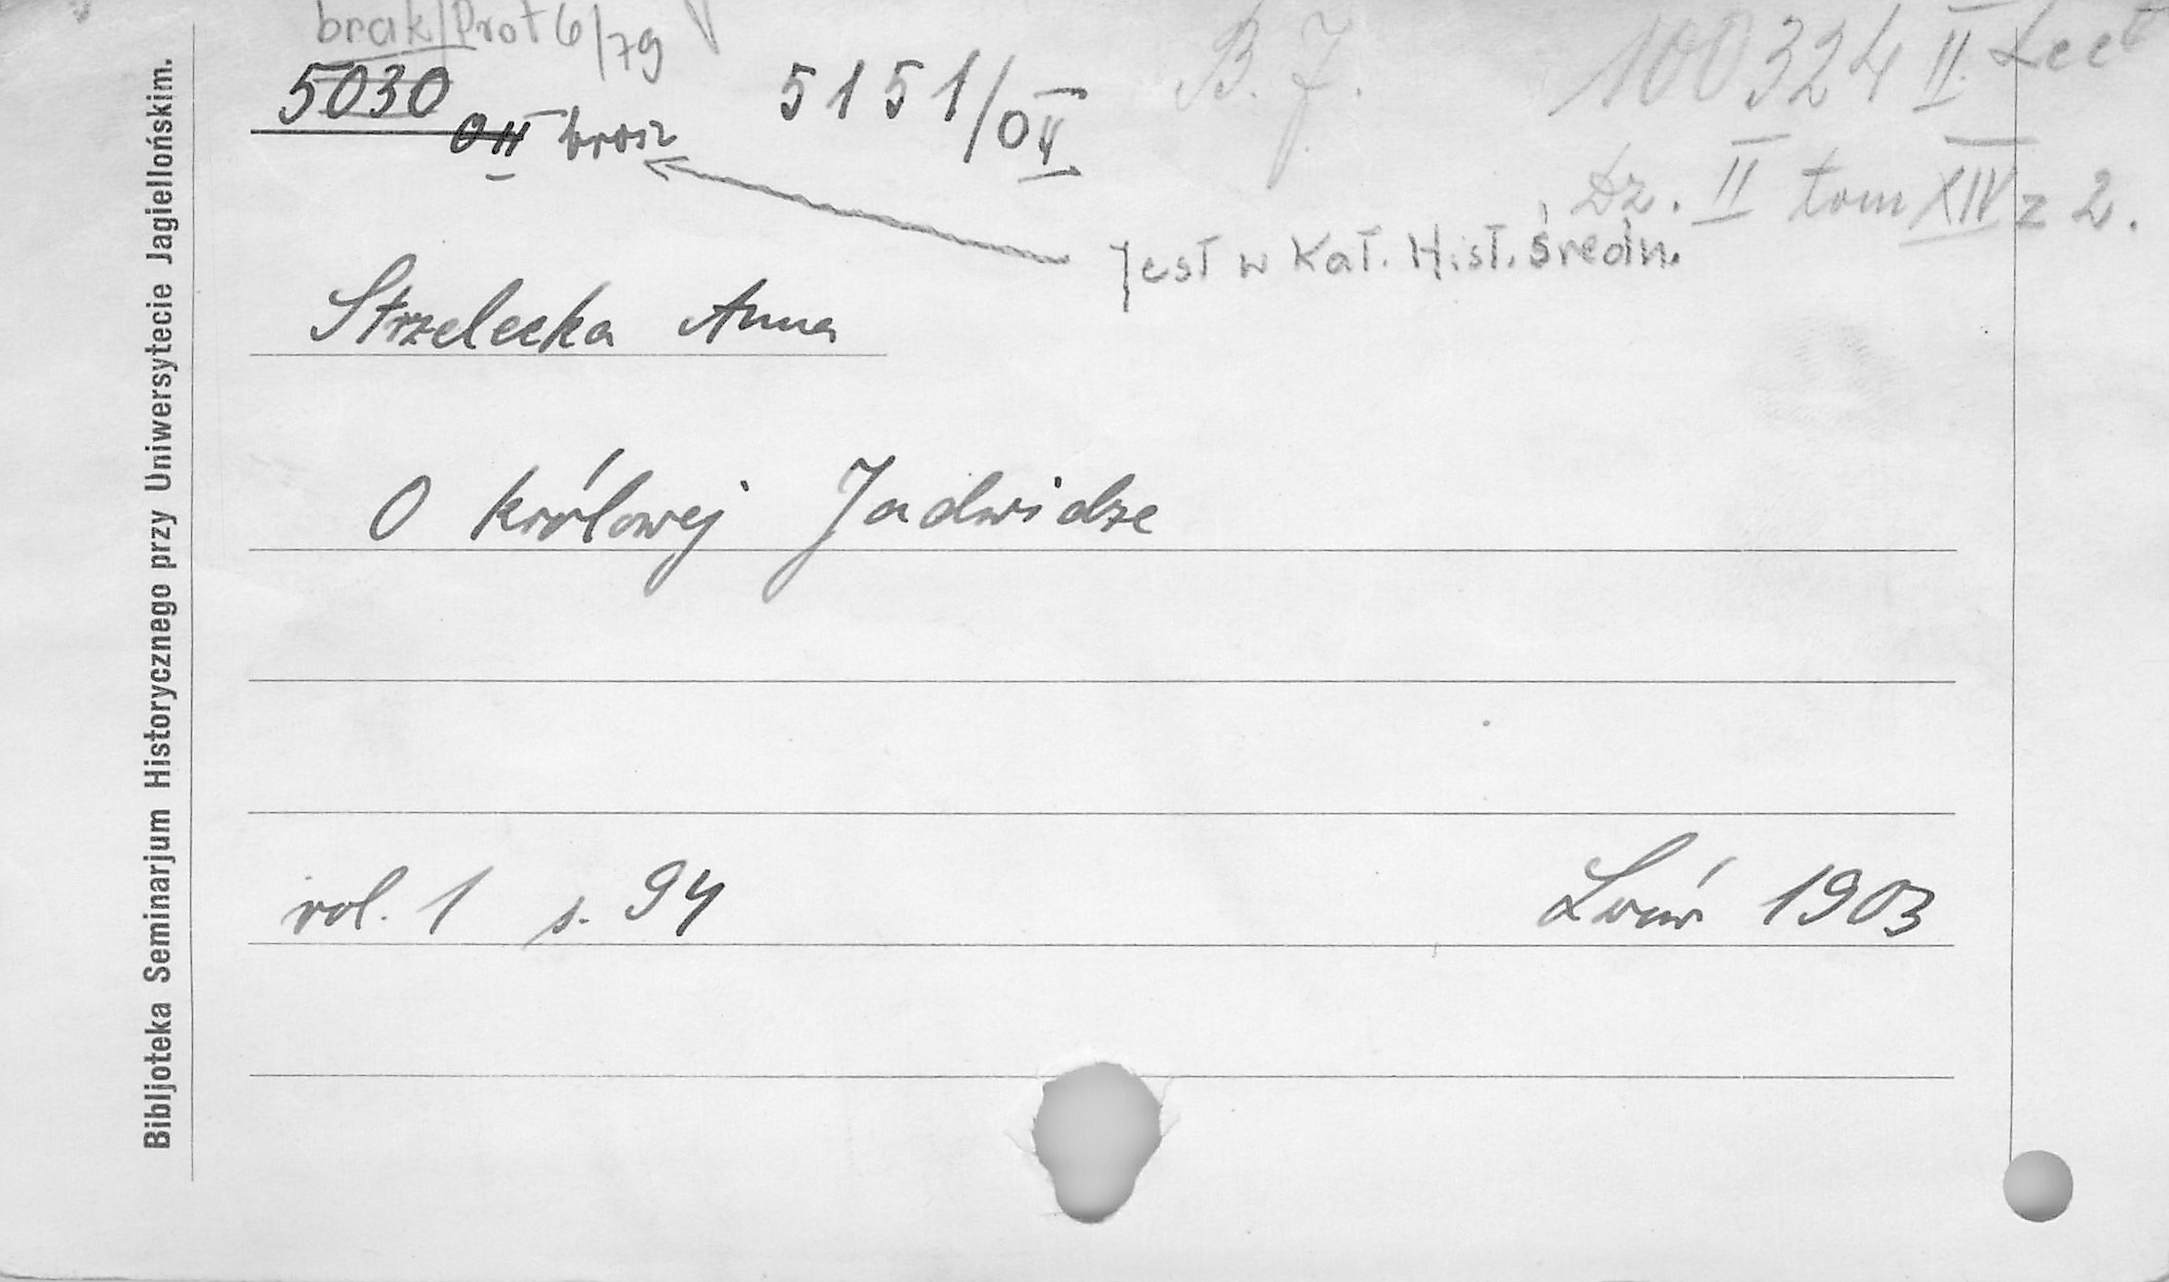 brak/Prot 6/79
5030 O II brosz
5151/O II
B. J.
100324 II.
Dz. II tom XIV z 2.
Jest w Kat. Hist. średn.
Strzelecka Anna
O królowej Jadwidze
vol. 1 s. 94
Lwów 1903
Bibljoteka Seminarjum Historycznego przy Uniwersytecie Jagiellońskim.